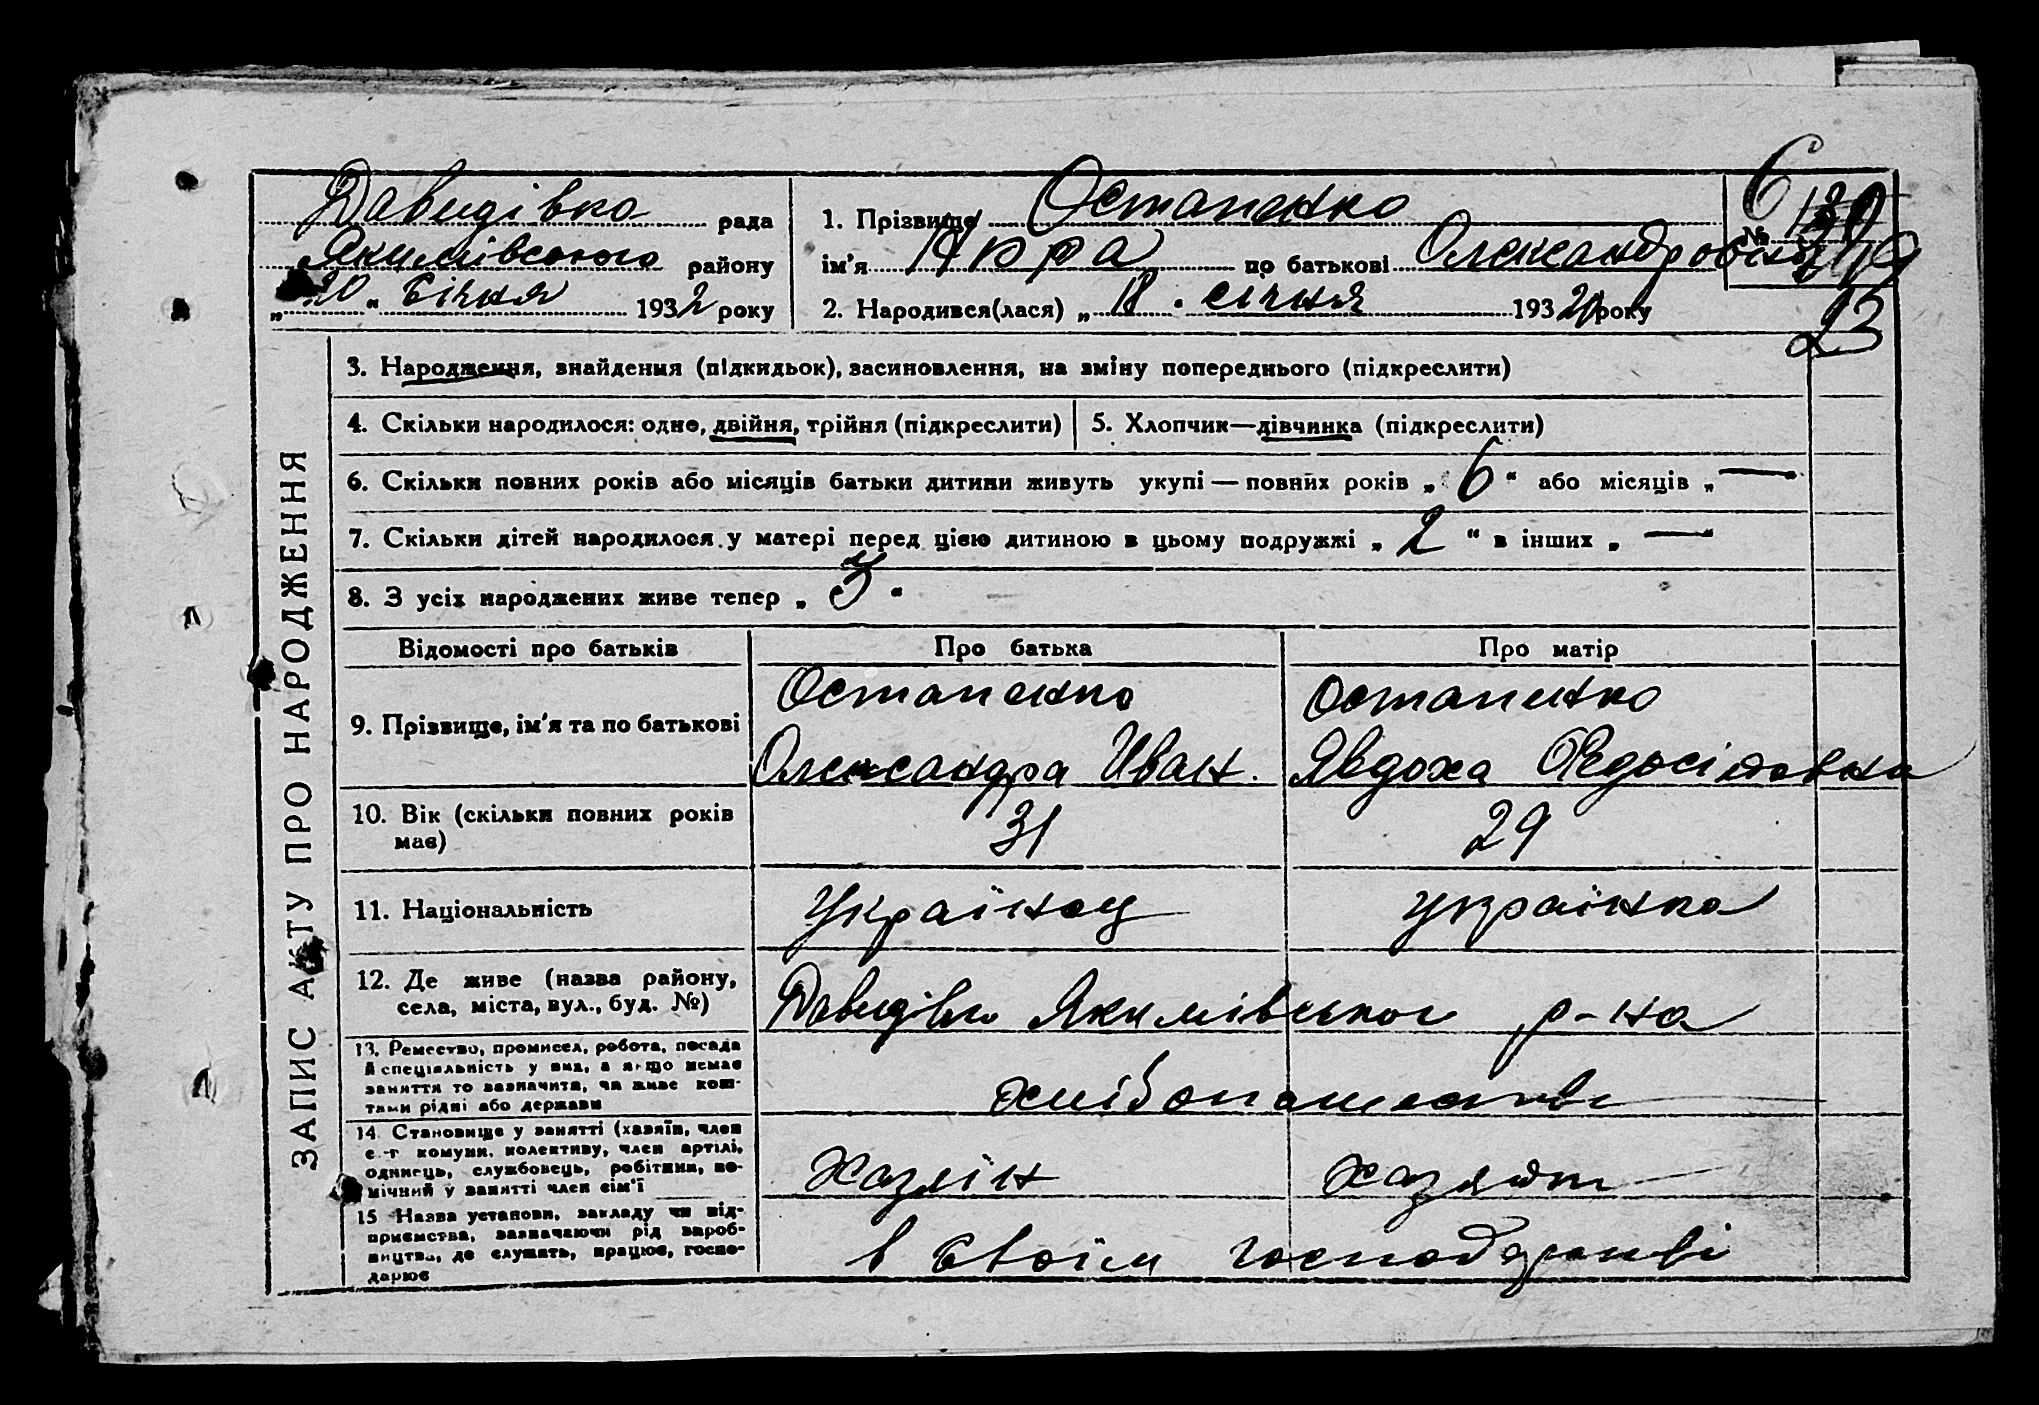 Давидівка рада
Якимівського району
„20“ Січня 1932 року
1. Прізвище Остапенко
ім'я по батькові Олександровна
2. Народився(лася) „18. січня 1932 року
№
6
23
ЗАПИС АКТУ ПРО НАРОДЖЕННЯ
3. Народження, знайдення (підкидьок), засиновлення, на зміну попереднього (підкреслити)
4. Скільки народилося: одне, двійня, трійня (підкреслити)
5. Хлопчик—дівчинка (підкреслити)
6. Скільки повних років або місяців батьки дитини живуть укупі — повних років „6“ або місяців „—“
7. Скільки дітей народилося у матері перед цією дитиною в цьому подружжі „2“ в інших „—“
8. З усіх народжених живе тепер „3“
Відомості про батьків Про батька Про матір
9. Прізвище, ім'я та по батькові
Остапенко
Олександра Иван.
Остапенко
Явдоха
10. Вік (скільки повних років
має)
31 29
11. Національність
Українец українка
12. Де живе (назва району,
села, міста, вул., буд. №)
Давидівка Якимівського р-на
13. Ремество, промисел, робота, посада
й спеціяльність у них, а якщо немає
заняття то зазначити, чи живе кош-
тами рідні або держави
хлібопашество
14. Становище у занятті (хазяїн, член
с.-г комуни, колективу, член артілі,
одинець, службовець, робітник, по-
мічний у занятті член сім'ї
Хазяін
15 Назва установи, закладу чи під-
приємства, зазначаючи рід вироб-
ництва, де служать, працює, госпо-
дарює
в своїм господарстві